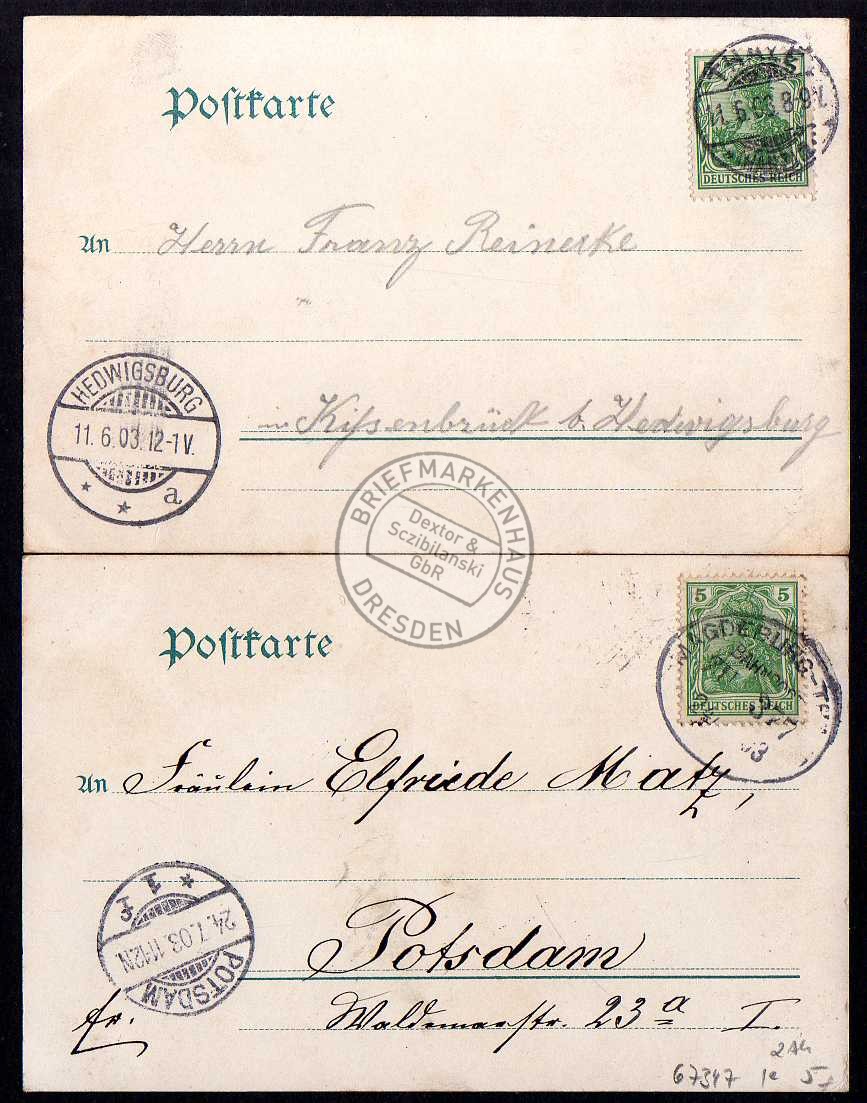 Postkarte
THALE
11.6.03 8-9V.
DEUTSCHES REICH
An Herrn Franz Reinecke
in Kissenbrück b. Hedwigsburg
HEDWIGSBURG
11.6.03.12-1V.
* * a
BRIEFMARKENHAUS
Dextor &
Sczibilanski
GbR
DRESDEN
Postkarte
5 5
MAGDEBURG-TH
BAHNPOST
DEUTSCHES REICH
377
03
An Fräulein Elfriede Matz,
* 1 f
24.7.03. 11-12N
POTSDAM
Potsdam
fr. Waldemarstr. 23a I.
67347 5